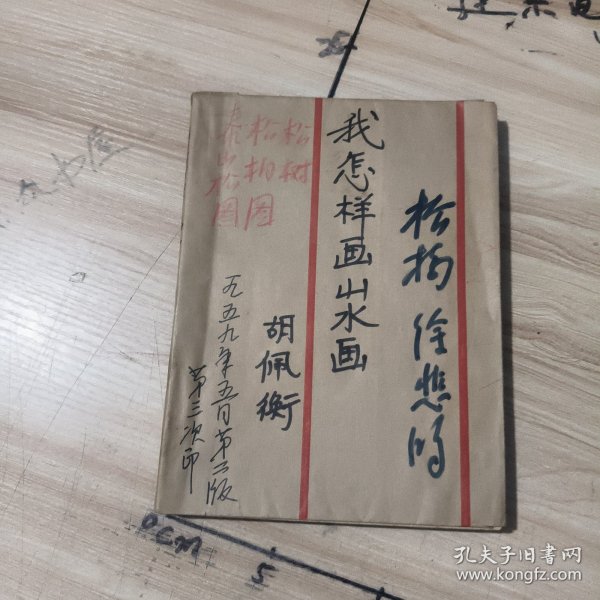 松柏 徐悲鸿
我怎样画山水画
胡佩衡
松树
松柏图
泰山松图
一九五九年五月第二版
第三次印
25
0CM
5
孔夫子旧书网
www.kongfz.com